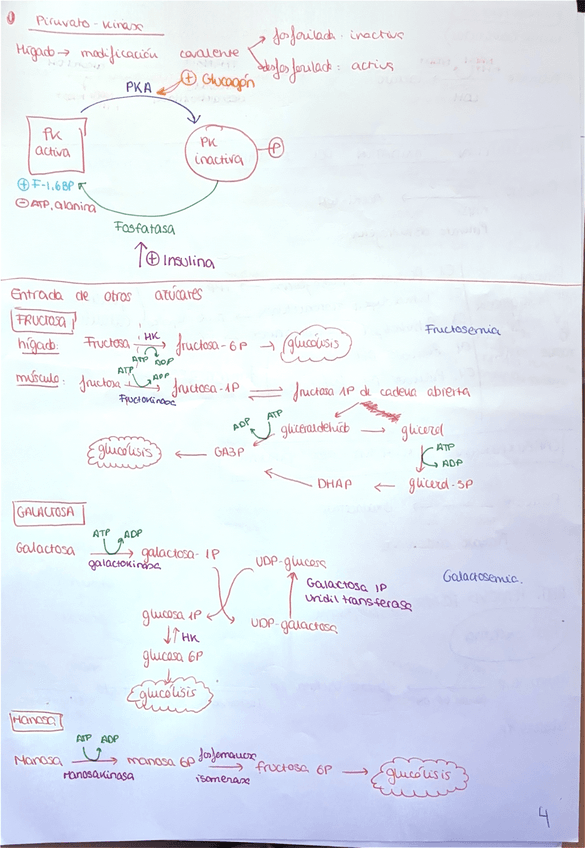 Piruvato-kinasa
Hígado → modificación covalente
fosforilada: inactiva
desfosforilada: activa
⊕ Glucagón
PKA
PK activa
PK inactiva
P
⊕ F-1,6BP
⊖ ATP, alanina
Fosfatasa
↑ ⊕ Insulina
Entrada de otros azúcares
FRUCTOSA
Fructosemia
hígado: Fructosa → HK fructosa-6P → glucólisis
ATP ADP
músculo: fructosa → fructosa-1P ⇌ fructosa 1P de cadena abierta
ATP ADP
Fructokinasa
ADP ATP gliceraldehído → glicerol
glucólisis ← GA3P
ATP
ADP
DHAP ← glicerol-3P
GALACTOSA
ATP ADP
Galactosa → galactosa-1P
galactokinasa
UDP-glucosa
Galactosemia.
Galactosa 1P
Uridil transferasa
glucosa 1P
UDP-galactosa
↓↑ HK
glucosa 6P
glucólisis
Manosa
ATP ADP
Manosa → manosa 6P → fructosa 6P → glucólisis
Manosakinasa
fosfomanosa
isomerasa
4